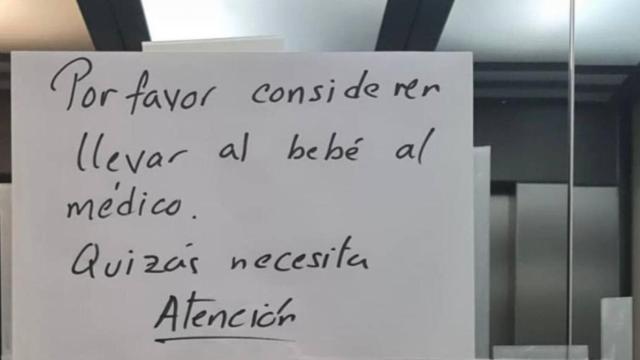 Por favor consideren
llevar al bebé al
médico.
Quizás necesita
Atención